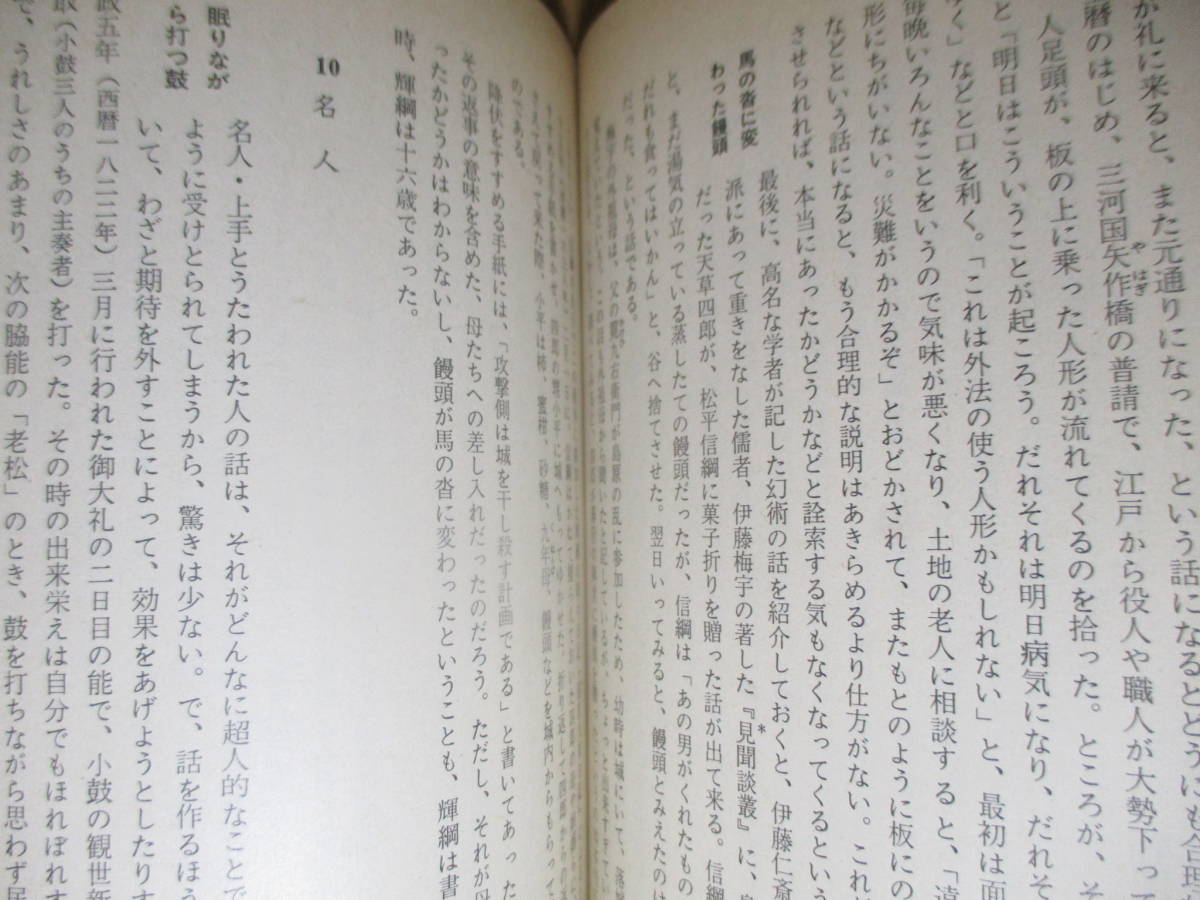 が礼に来ると、また元通りになった、という話になるとどうにも合理
暦のはじめ、三河国矢作橋の普請で、江戸から役人や職人が大勢下って
やはぎ
人足頭が、板の上に乗った人形が流れてくるのを拾った。ところが、そ
と「明日はこういうことが起ころう。だれそれは明日病気になり、だれそ
く」などと口を利く。「これは外法の使う人形かもしれない」と、最初は面
毎晩いろんなことをいうので気味が悪くなり、土地の老人に相談すると、「遠
形にちがいない。災難がかかるぞ」とおどかされて、またもとのように板にの
などという話になると、もう合理的な説明はあきらめるより仕方がない。これ
させられれば、本当にあったかどうかなどと詮索する気もなくなってくるという
馬の沓に変
わった饅頭
最後に、高名な学者が記した幻術の話を紹介しておくと、伊藤仁斎
派にあって重きをなした儒者、伊藤梅宇の著した『見聞談叢』に、
だった天草四郎が、松平信綱に菓子折りを贈った話が出て来る。信綱
と、まだ湯気の立っている蒸したての饅頭だったが、信綱は「あの男がくれたもの
だれも食ってはいかん」と、谷へ捨てさせた。翌日いってみると、饅頭とみえたのは
だった、という話である。
の外祖母は、父の
右衛門が島原の乱に参加したため、幼時は城にいて、落
て来た際、小平は柿、蜜柑、砂糖、九年母、饅頭などを城内からもらって
のである。
降伏をすすめる手紙には、「攻撃側は城を干し殺す計画である」と書いてあった
その返事の意味を含めた、母たちへの差し入れだったのだろう。ただし、それが母
ったかどうかはわからないし、饅頭が馬の沓に変わったということも、輝綱は書
時、輝綱は十六歳であった。
10 名人
眠りなが
ら打つ鼓
名人・上手とうたわれた人の話は、それがどんなに超人的なことで
ように受けとられてしまうから、驚きは少ない。で、話を作るほう
いて、わざと期待を外すことによって、効果をあげようとしたりす
政五年(西暦一八二二年)三月に行われた御大礼の二日目の能で、小鼓の観世新
(小鼓三人のうちの主奏者)を打った。その時の出来栄えは自分でもほれぼれす
で、うれしさのあまり、次の脇能の「老松」のとき、鼓を打ちながら思わず居